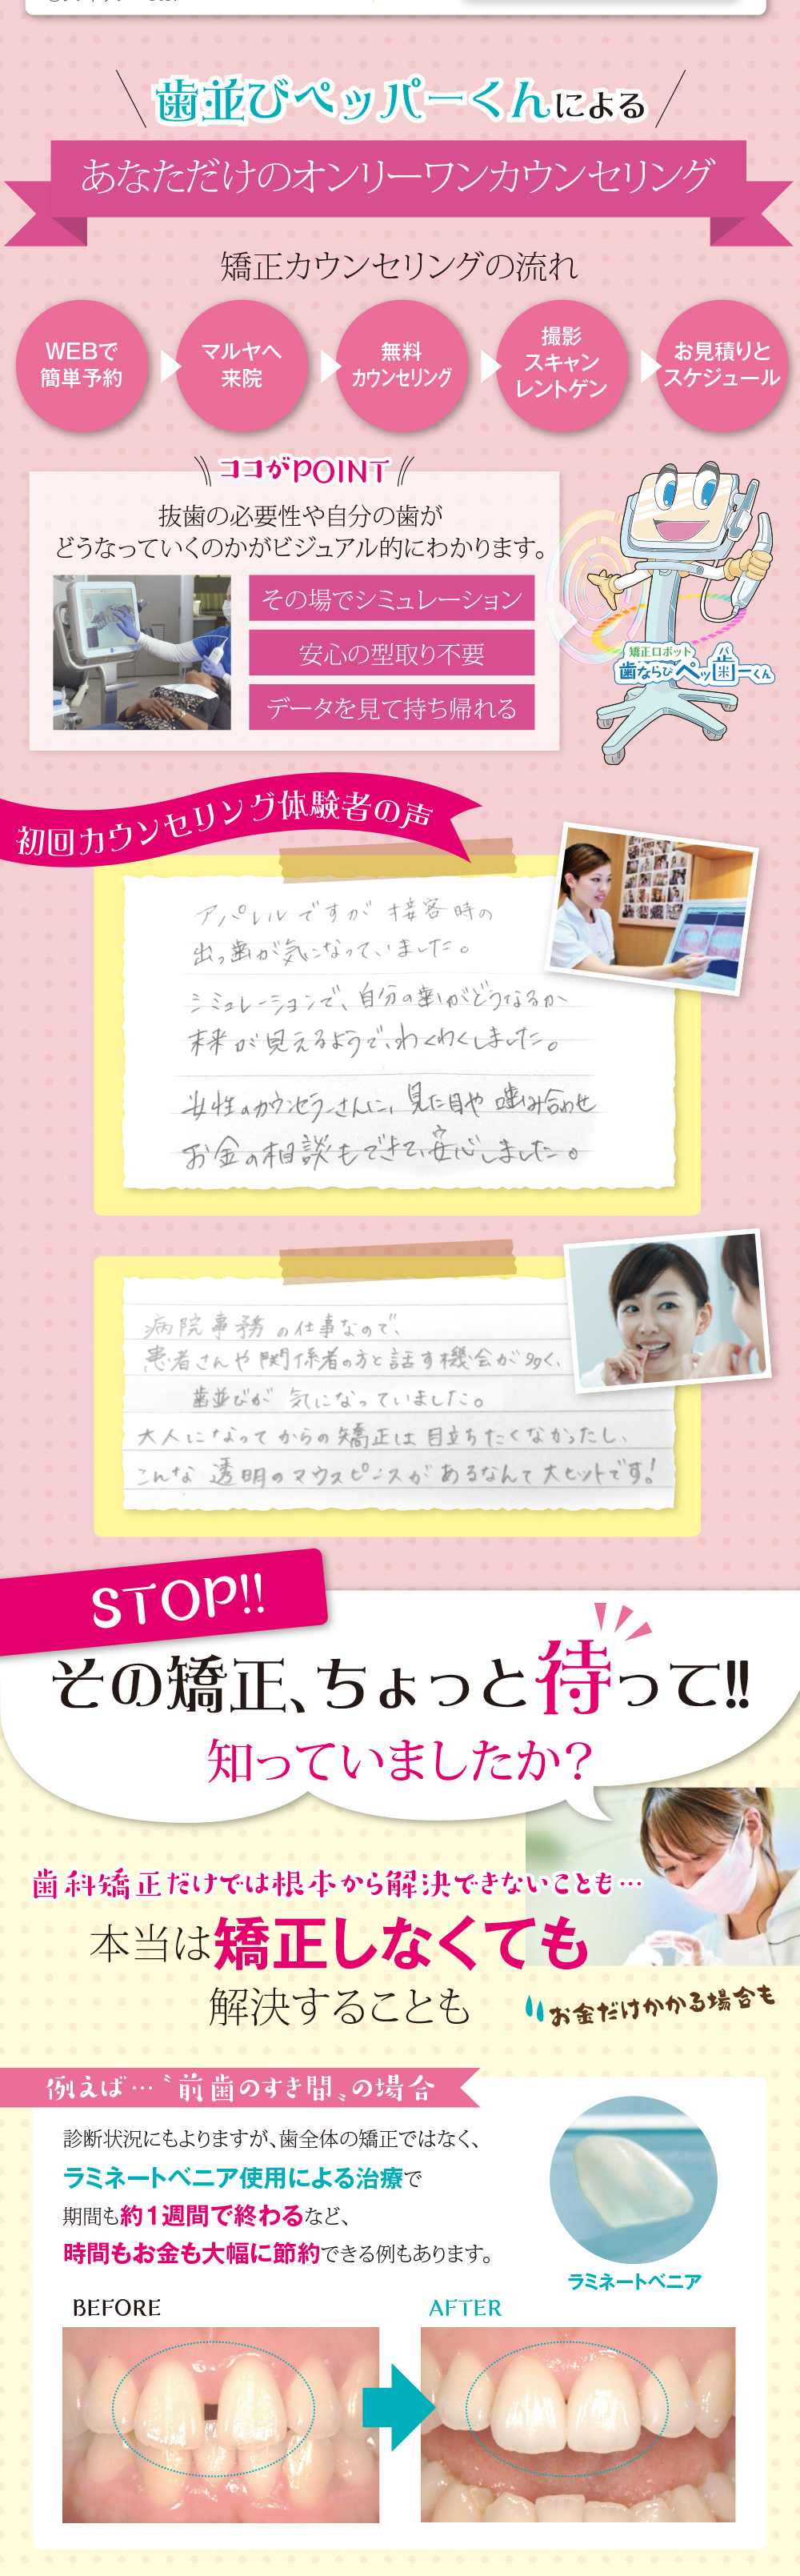 歯並びペッパーくんによる
あなただけのオンリーワンカウンセリング
矯正カウンセリングの流れ
WEBで
簡単予約
マルヤへ
来院
無料
カウンセリング
撮影
スキャン
レントゲン
お見積りと
スケジュール
ココがPOINT
抜歯の必要性や自分の歯が
どうなっていくのかがビジュアル的にわかります。
その場でシミュレーション
安心の型取り不要
データを見て持ち帰れる
矯正ロボット
歯ならびペッ歯ーくん
パ
初回カウンセリング体験者の声
アパレルですが接客時の
出っ歯が気になっていました。
シミュレーションで、自分の歯がどうなるか
未来が見えるようで、わくわくしました。
女性のカウンセラーさんに、見た目や噛み合わせ
お金の相談もできて、安心しました。
病院事務の仕事なので、
患者さんや関係者の方と話す機会が多く、
歯並びが気になっていました。
大人になってからの矯正は目立ちたくなかったし、
こんな透明のマウスピースがあるなんて大ヒットです!
STOP!!
その矯正、ちょっと待って!!
知っていましたか?
歯科矯正だけでは根本から解決できないことも…
本当は矯正しなくても
解決することも
お金だけかかる場合も
例えば…〝前歯のすき間〟の場合
診断状況にもよりますが、歯全体の矯正ではなく、
ラミネートベニア使用による治療で
期間も約1週間で終わるなど、
時間もお金も大幅に節約できる例もあります。
ラミネートベニア
BEFORE
AFTER